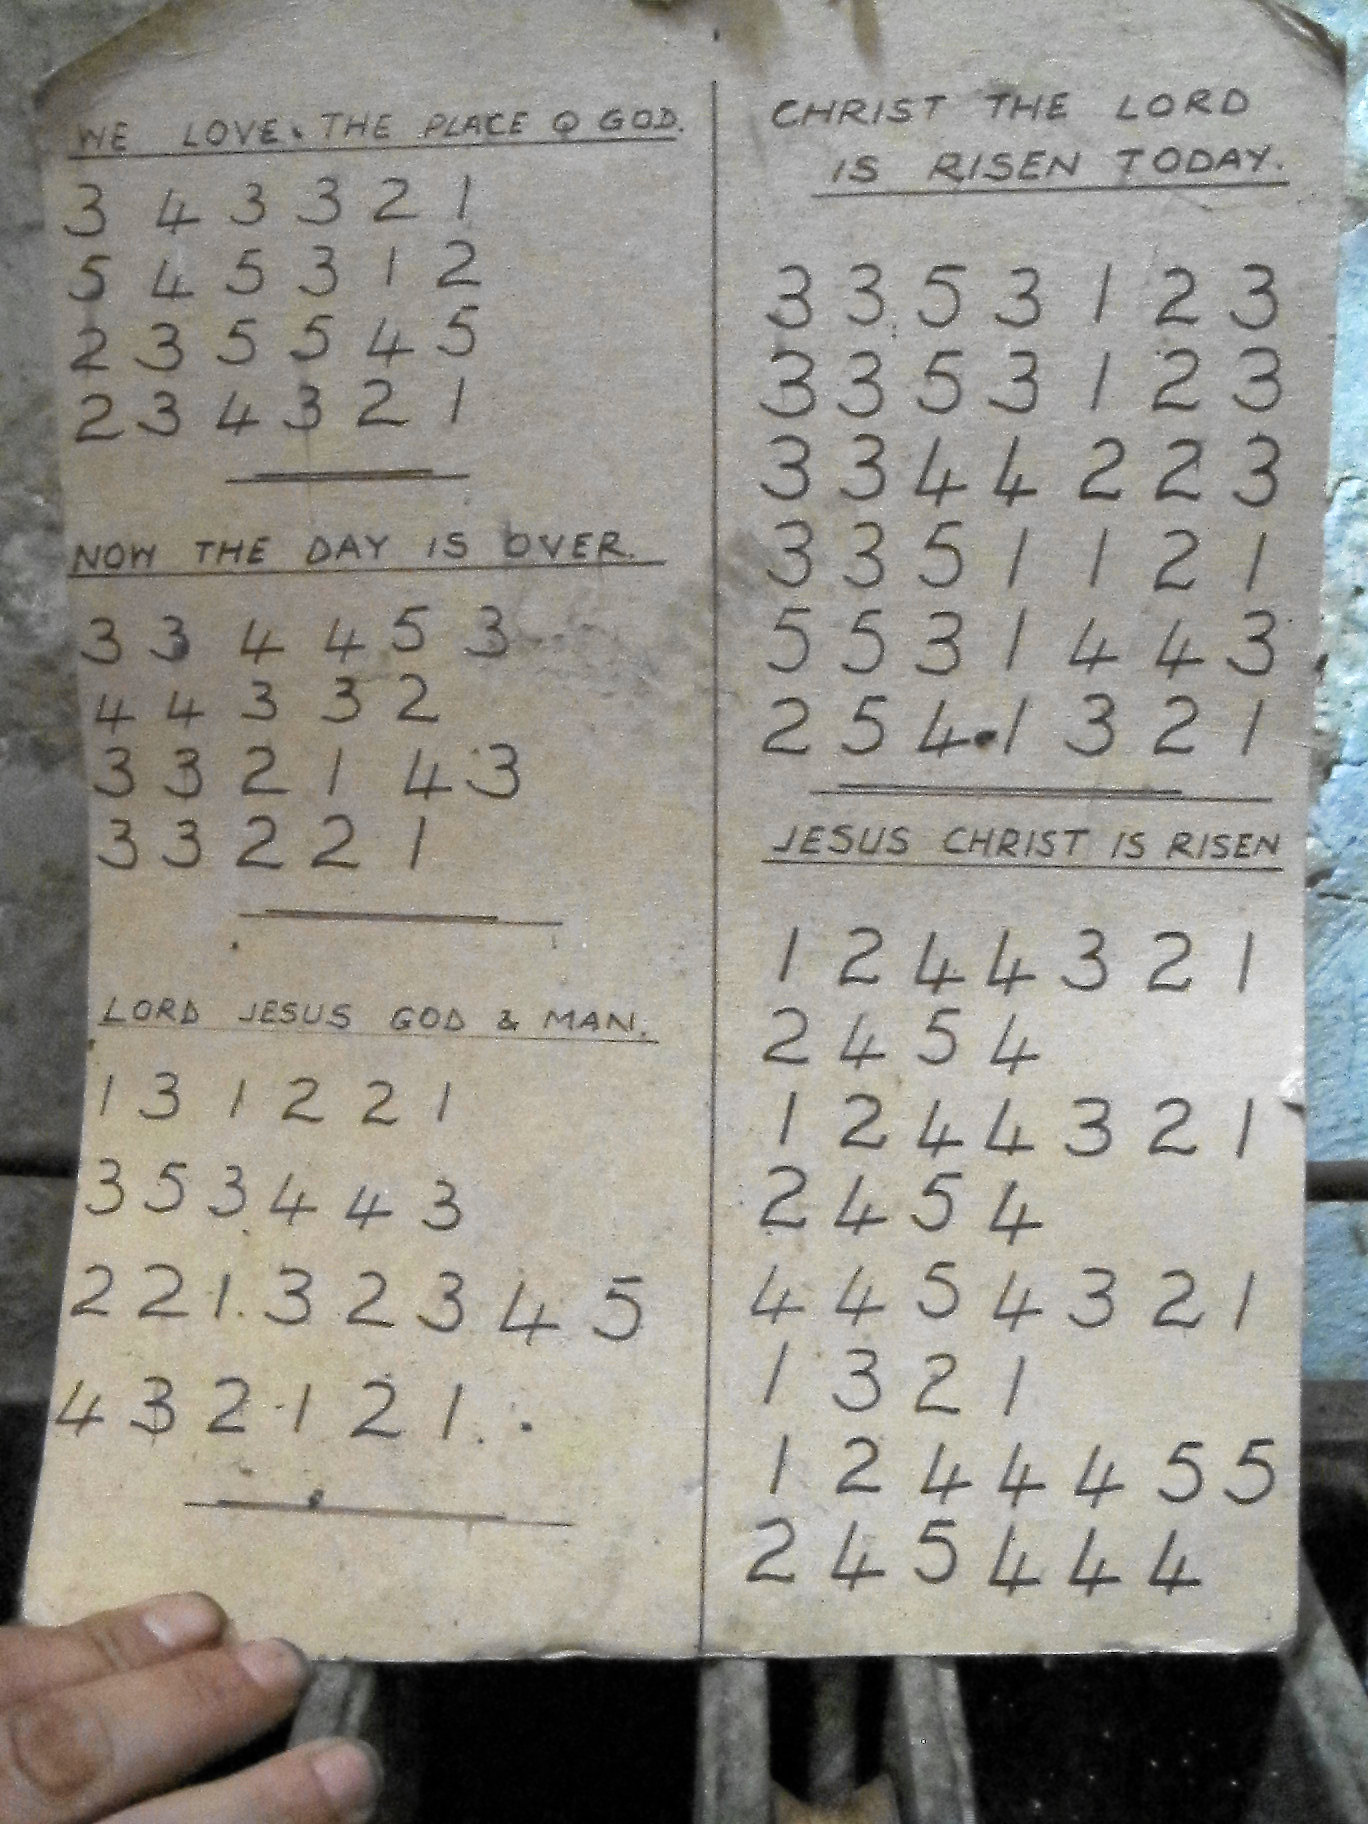 WE LOVE THE PLACE O GOD.
3 4 3 3 2 1
5 4 5 3 1 2
2 3 5 5 4 5
2 3 4 3 2 1
NOW THE DAY IS OVER.
3 3 4 4 5 3
4 4 3 3 2
3 3 2 1 4 3
3 3 2 2 1
LORD JESUS GOD & MAN.
1 3 1 2 2 1
3 5 3 4 4 3
2 2 1. 3 2 3 4 5
4 3 2 1 2 1. .
CHRIST THE LORD
IS RISEN TODAY.
3 3 5 3 1 2 3
3 3 5 3 1 2 3
3 3 4 4 2 2 3
3 3 5 1 1 2 1
5 5 3 1 4 4 3
2 5 4 . 1 3 2 1
JESUS CHRIST IS RISEN
1 2 4 4 3 2 1
2 4 5 4
1 2 4 4 3 2 1
2 4 5 4
4 4 5 4 3 2 1
1 3 2 1
1 2 4 4 4 5 5
2 4 5 4 4 4